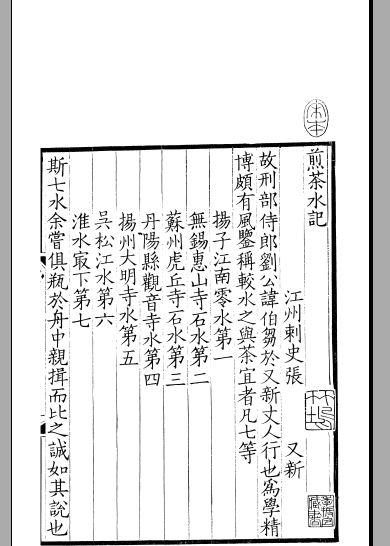 煎茶水記
江州刺史張 又新
故刑部侍郎劉公諱伯芻於又新丈人行也爲學精
博頗有風鑒稱較水之與茶宜者凡七等
揚子江南零水第一
無錫惠山寺石水第二
蘇州虎丘寺石水第三
丹陽縣觀音寺水第四
揚州大明寺水第五
吳松江水第六
淮水㝡下第七
斯七水余嘗俱瓶於舟中親挹而比之誠如其說也